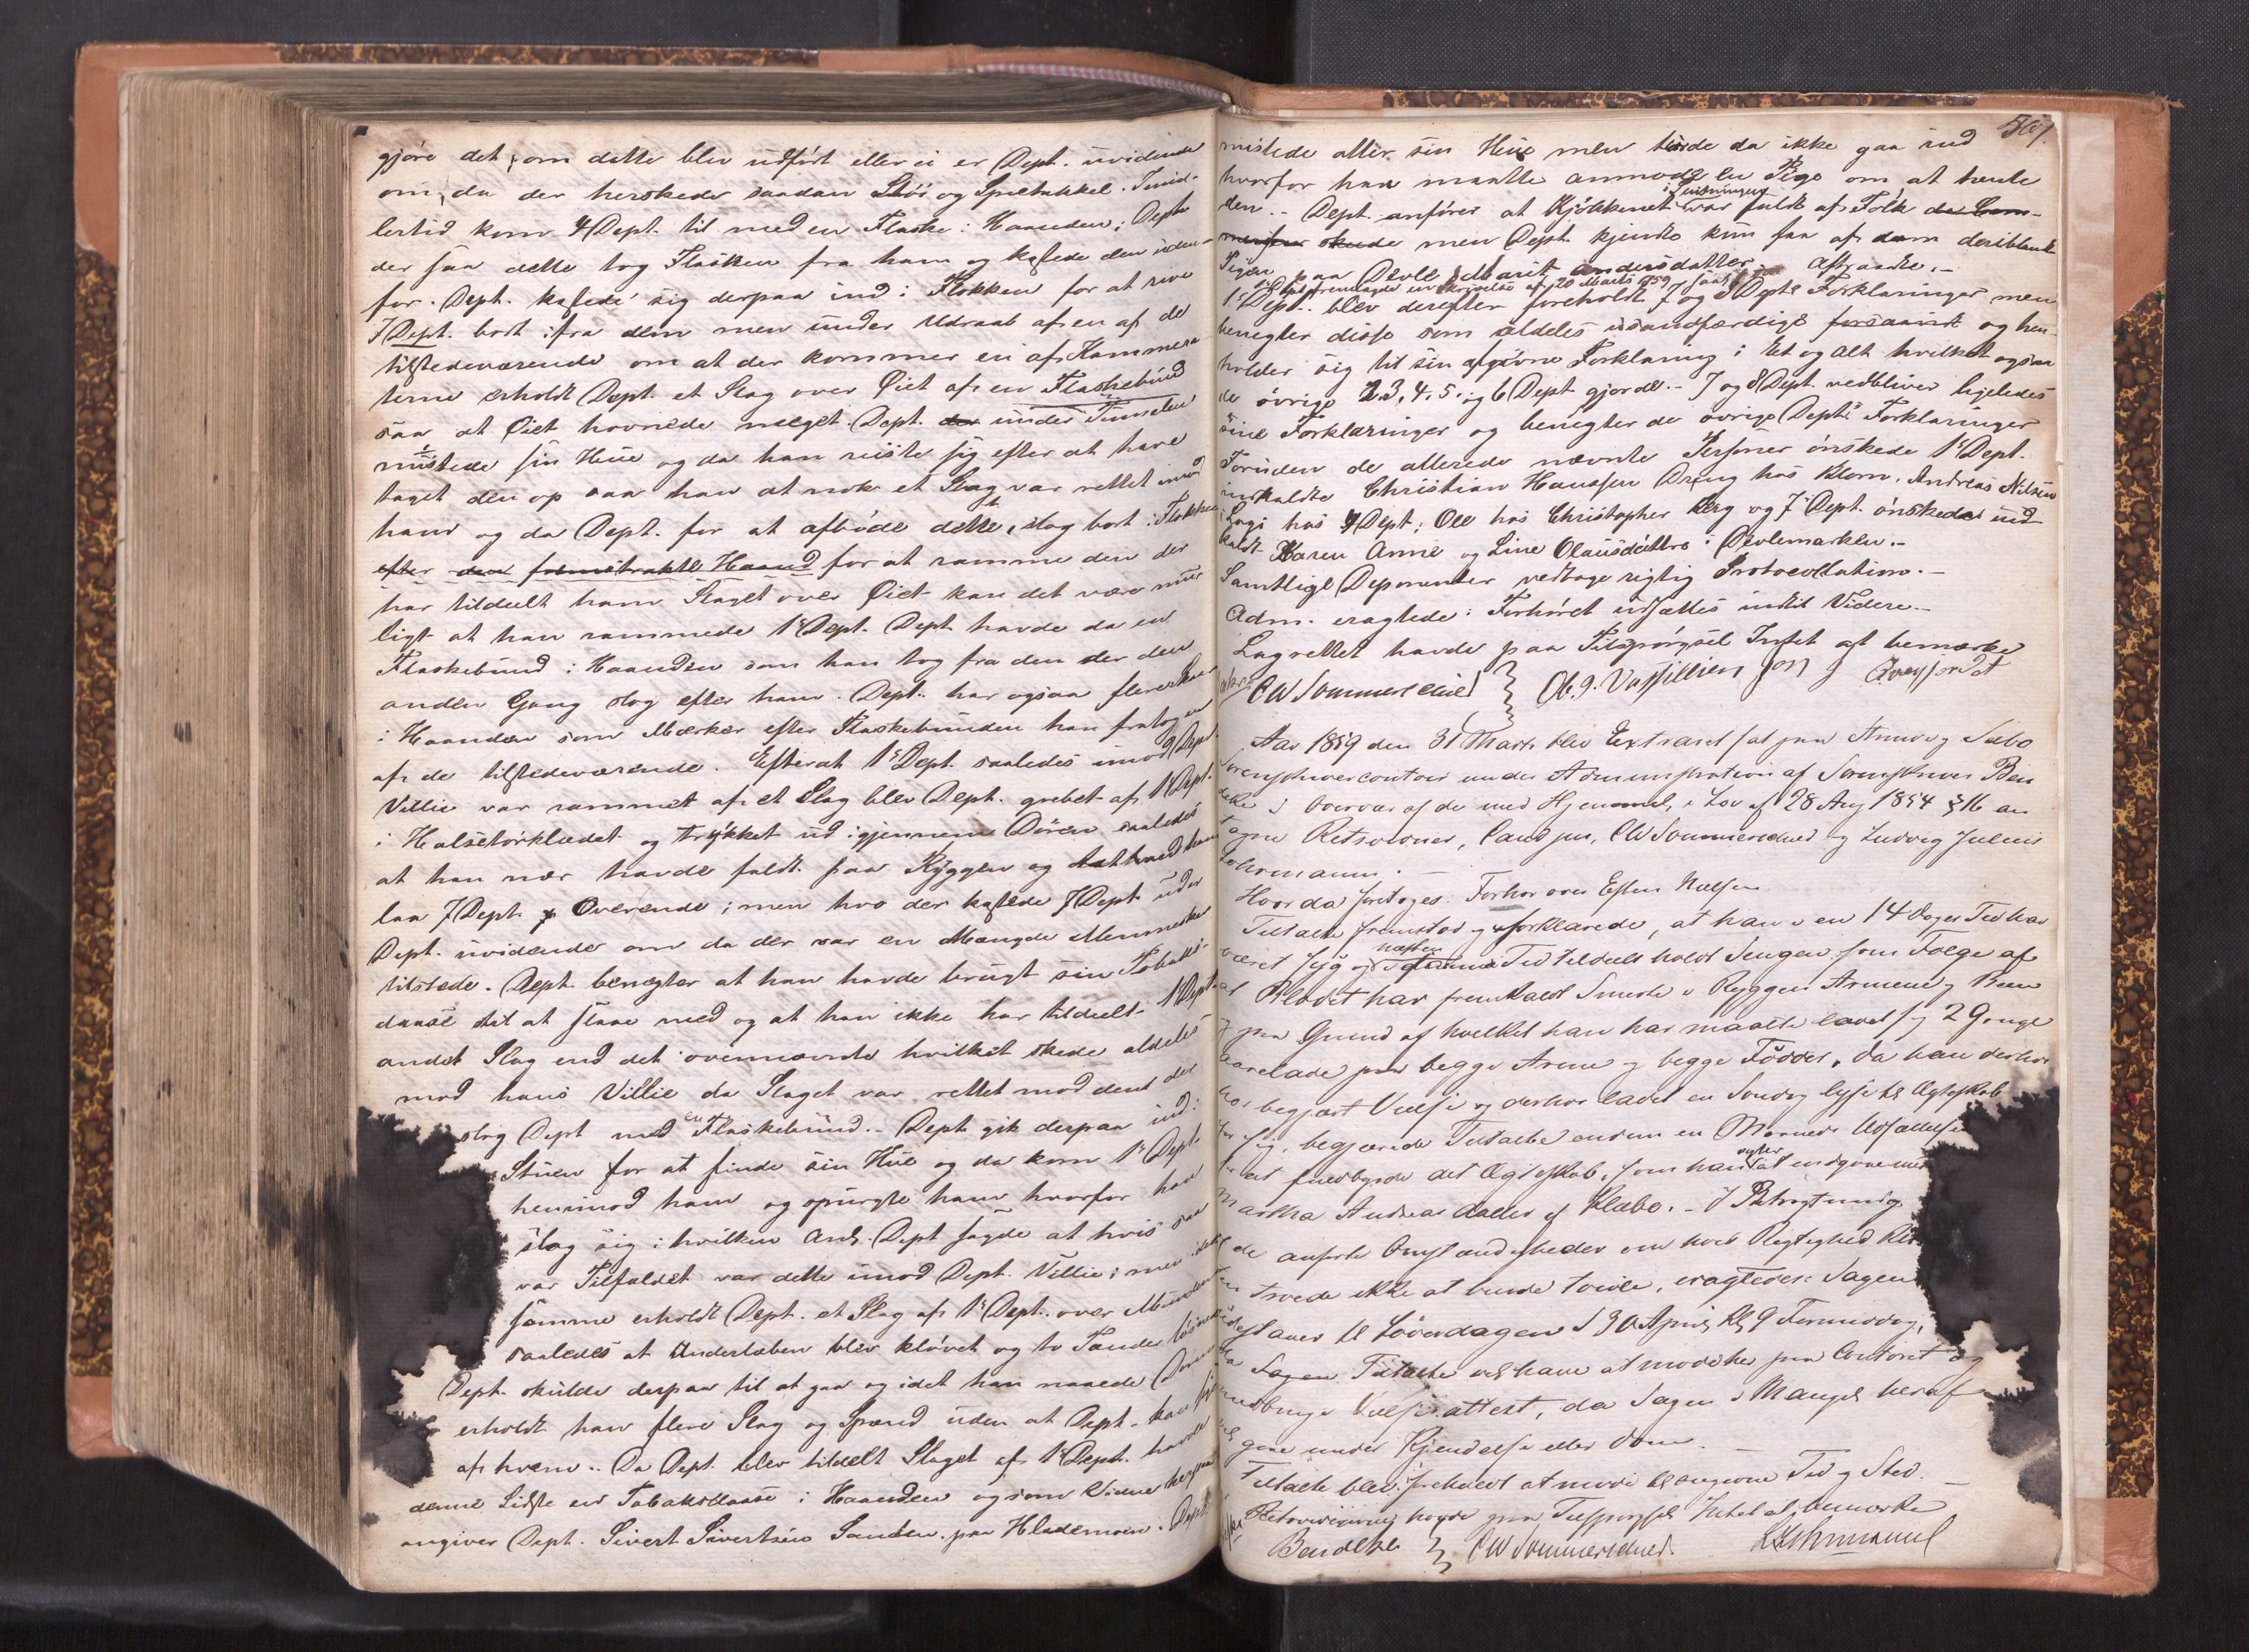 gjöre det, om dette blev udfört eller ei er Dept. uvidende
om, da der herskede saadan Stöi og Spectakkel. Imid-
lertid kom 4 Dept. til med en Flaske i Haanden; Dept.
der saa dette tog Flasken fra ham og kastede den uden-
for. Dept. kastede sig derpaa ind i Flokken for at rive
7 Dept. bort ifra dem men under Udraab af en af de
tilstedeværende om at der kommer en af Kammera-
terne erholdt Dept. et Slag over Öiet af en Flaskebund
saa at Öiet hovnede meget. Dept. under Tumselen
mistede sin Hue og da han reiste sig efter at have
taget den op saa han at nok et Slag var rettet imod
ham og da Dept. for at afböde dette, slog bort i Flokken
efter den fremstrakte Haand for at ramme den der
har tildeelt ham Slaget over Öiet kan det være mue-
ligt at han rammede 1ste Dept. Dept. havde da en
Flaskebund i Haanden som han tog fra den der den
anden Gang slog efter ham. Dept. har ogsaa flere Skaar
i Haanden som Mærker efter Flaskebunden han fratog en
af de tilstedeværende. Efterat 1ste Dept. saaledes imod Dept.
Villie var rammet af et Slag blev Dept. grebet af 1 Dept.
i Halstörklædet og trykket ud igjennem Dören saaledes
at han nær havde faldt paa Ryggen og
laa 7 Dept. Overende; men hvo der kastede 7 Dept. uder
Dept. uvidende om da der var en Mængde Mennesker
tilstede. Dept. benegter at han havde brugt sin Tobaks-
daase til at slaae med og at han ikke har tildeelt 1 Dept.
andet Slag end det ovennævnte hvilket skede aldeles
mod hans Villie da Slaget var rettet mod den der
slog Dept. med en Flaskebund. - Dept. gik derpaa ind i
Stuen for at finde sin Hue og da kom 1ste Dept.
henimod ham og spurgte ham hvorfor han
slog sig i hvilken Anl. Dept. sagde at hvis saa
var Tilfældet var dette imod Dept. Villie; men idet
samme erholdt Dept. et Slag af 1ste Dept. over Munden
saaledes at Underlæben blev klövet og to Tænder
Dept. skulde derpaa til at gaa og idet han naaede Dören
erholdt han flere Slag og Spænd uden at Dept. kan sige
af hvem. - Da Dept. blev tildelt Slaget af 1ste Dept. havde
denne Sidste en Tobaksdaase i Haanden og som Vidne herpaa
angiver Dept. Sivert Sivertsen Sanden paa Hlademoen. Dept.
507.
mistede atter sin Hue men turde da ikke gaa ind
hvorfor han maatte anmode en Pige om at hente
den. - Dept. anförer at Kjökkenet i Leistningen var fuldt af Folk
skede men Dept. kjendte kun faa af dem deriblandt
Pigen paa Devle Marit Andersdatter. Aftraadte. -
fremlagde en Skrivelse af 20 Marts 1859
1ste Dept. blev derefter foreholdt 7 og 8 Depts Forklaringer men
benegter disse som aldeles usandfærdige og hen-
holder sig til sin afgivne Forklaring i Et og Alt hvilket ogsaa
de övrige 2. 3. 4. 5. og 6 Dept. gjorde. - 7 og 8 Dept. vedbliver ligeledes
sine Forklaringer og benegter de övrige Depts Forklaringer
Foruden de allerede nævnte Personer önskede 1ste Dept.
indkaldte Christian Hanssen Dreng hos Klom, Andreas Nilsen
Logi hos 4 Dept; Ole hos Christopher Berg og 7de Dept. önskede ind-
kaldt Karen Anne og Line Olausdöttre i Devlemarken. -
Samtlige Deponenter vedtoge rigtig Protocollation. -
Adm. eragtede: Forhöret udsættes indtil Videre. -
Lagrettet havde paa Tilspörgsel Intet at bemærke
CW Sommerschield
Aar 1859 den 31 Marts blev Extraret sat paa Strinde og Selbo
Sorenskrivercontoir under Administration af Sorenskriver Ben
deke i Overvær af de med Hjemmel i Lov af 28 Aug 1854 § 16 an
tagne Retsvidner, Cand jur. CW Sommerschield og Ludvig Julius
Lehmann. -
Hvor da foretoges: Forhör over Esten Nielsen
Tiltalte fremstod og forklarede, at han i en 14 Dages Tid har
været syg og i næsten samme Tid tildeels holdt Sengen som Følge af
at Blodet har fremkaldt Smerte i Ryggen Armene og Been
og paa Grund af hvilket han har maattet ladet sig 2 Gange
aarelade paa begge Arme og begge Födder. Da han derhos
har begjært Vielse og derhos ladet en Sondag lyse til Ægteskab
for sig, begjærede Tiltalte endnu en Maaneds Udsættelse
for at fuldbyrde det Ægteskab, som han agter at indgaae med
Martha Andreasdatter af Klæbo. - I Betragtning af
de anförte Omstændigheder om hvis Rigtighed Ret
ten troede ikke at burde tvivle, eragtedes: Sagen
udstaaer til Löverdagen d 30 April Kl 9 Formiddag,
da Sagen Tiltalte vil have at möde her paa Contoiret og
medbringe Vielsesattest, da Sagen i Mangel heraf
vil gaae under Kjendelse eller Dom. -
Tiltalte blev foreholdt at möde til angivne Tid og Sted. -
Retsvidnerne havde paa Tilspörgsel Intet at bemærke
Bendeke CW Sommerschield. LJLehmann